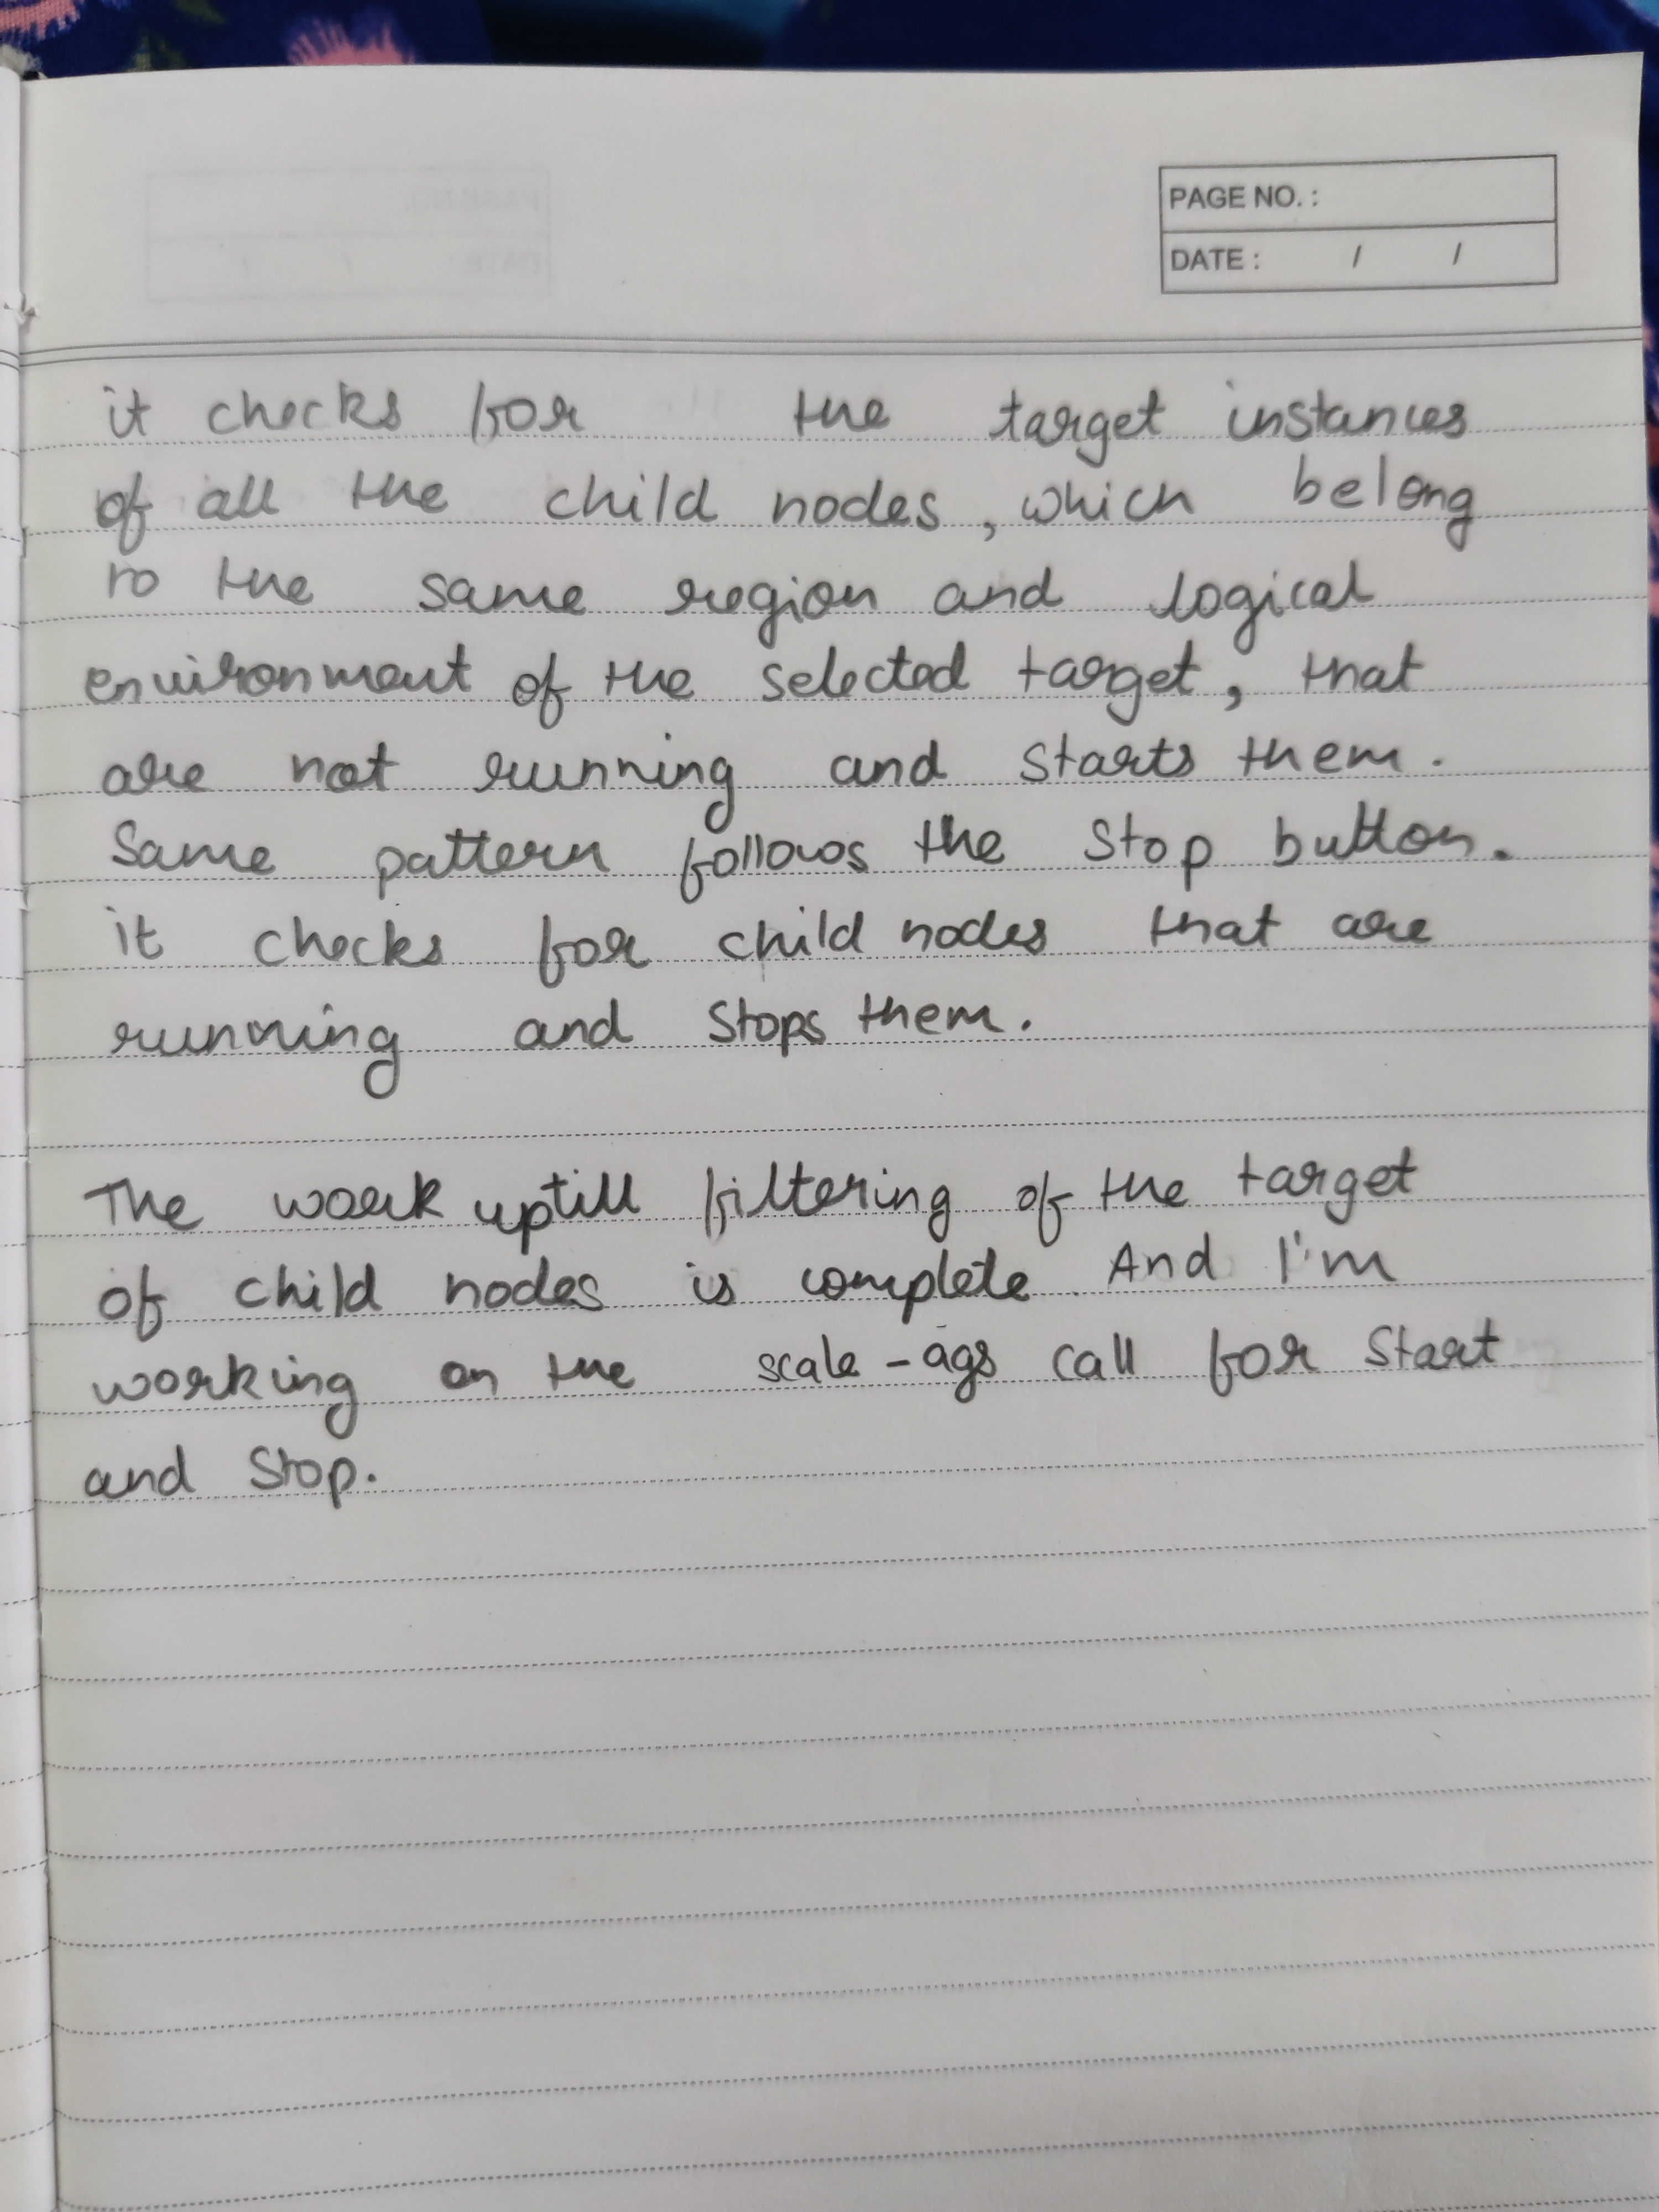 PAGE NO. :
DATE : / /
it checks for the target instances
of all the child nodes, which belong
to the same region and logical
environment of the selected target, that
are not running and starts them.
Same pattern follows the Stop button.
it checks for child nodes that are
running and stops them.
The work uptill filtering of the target
of child nodes is complete. And I'm
working on the scale-ags call for Start
and Stop.